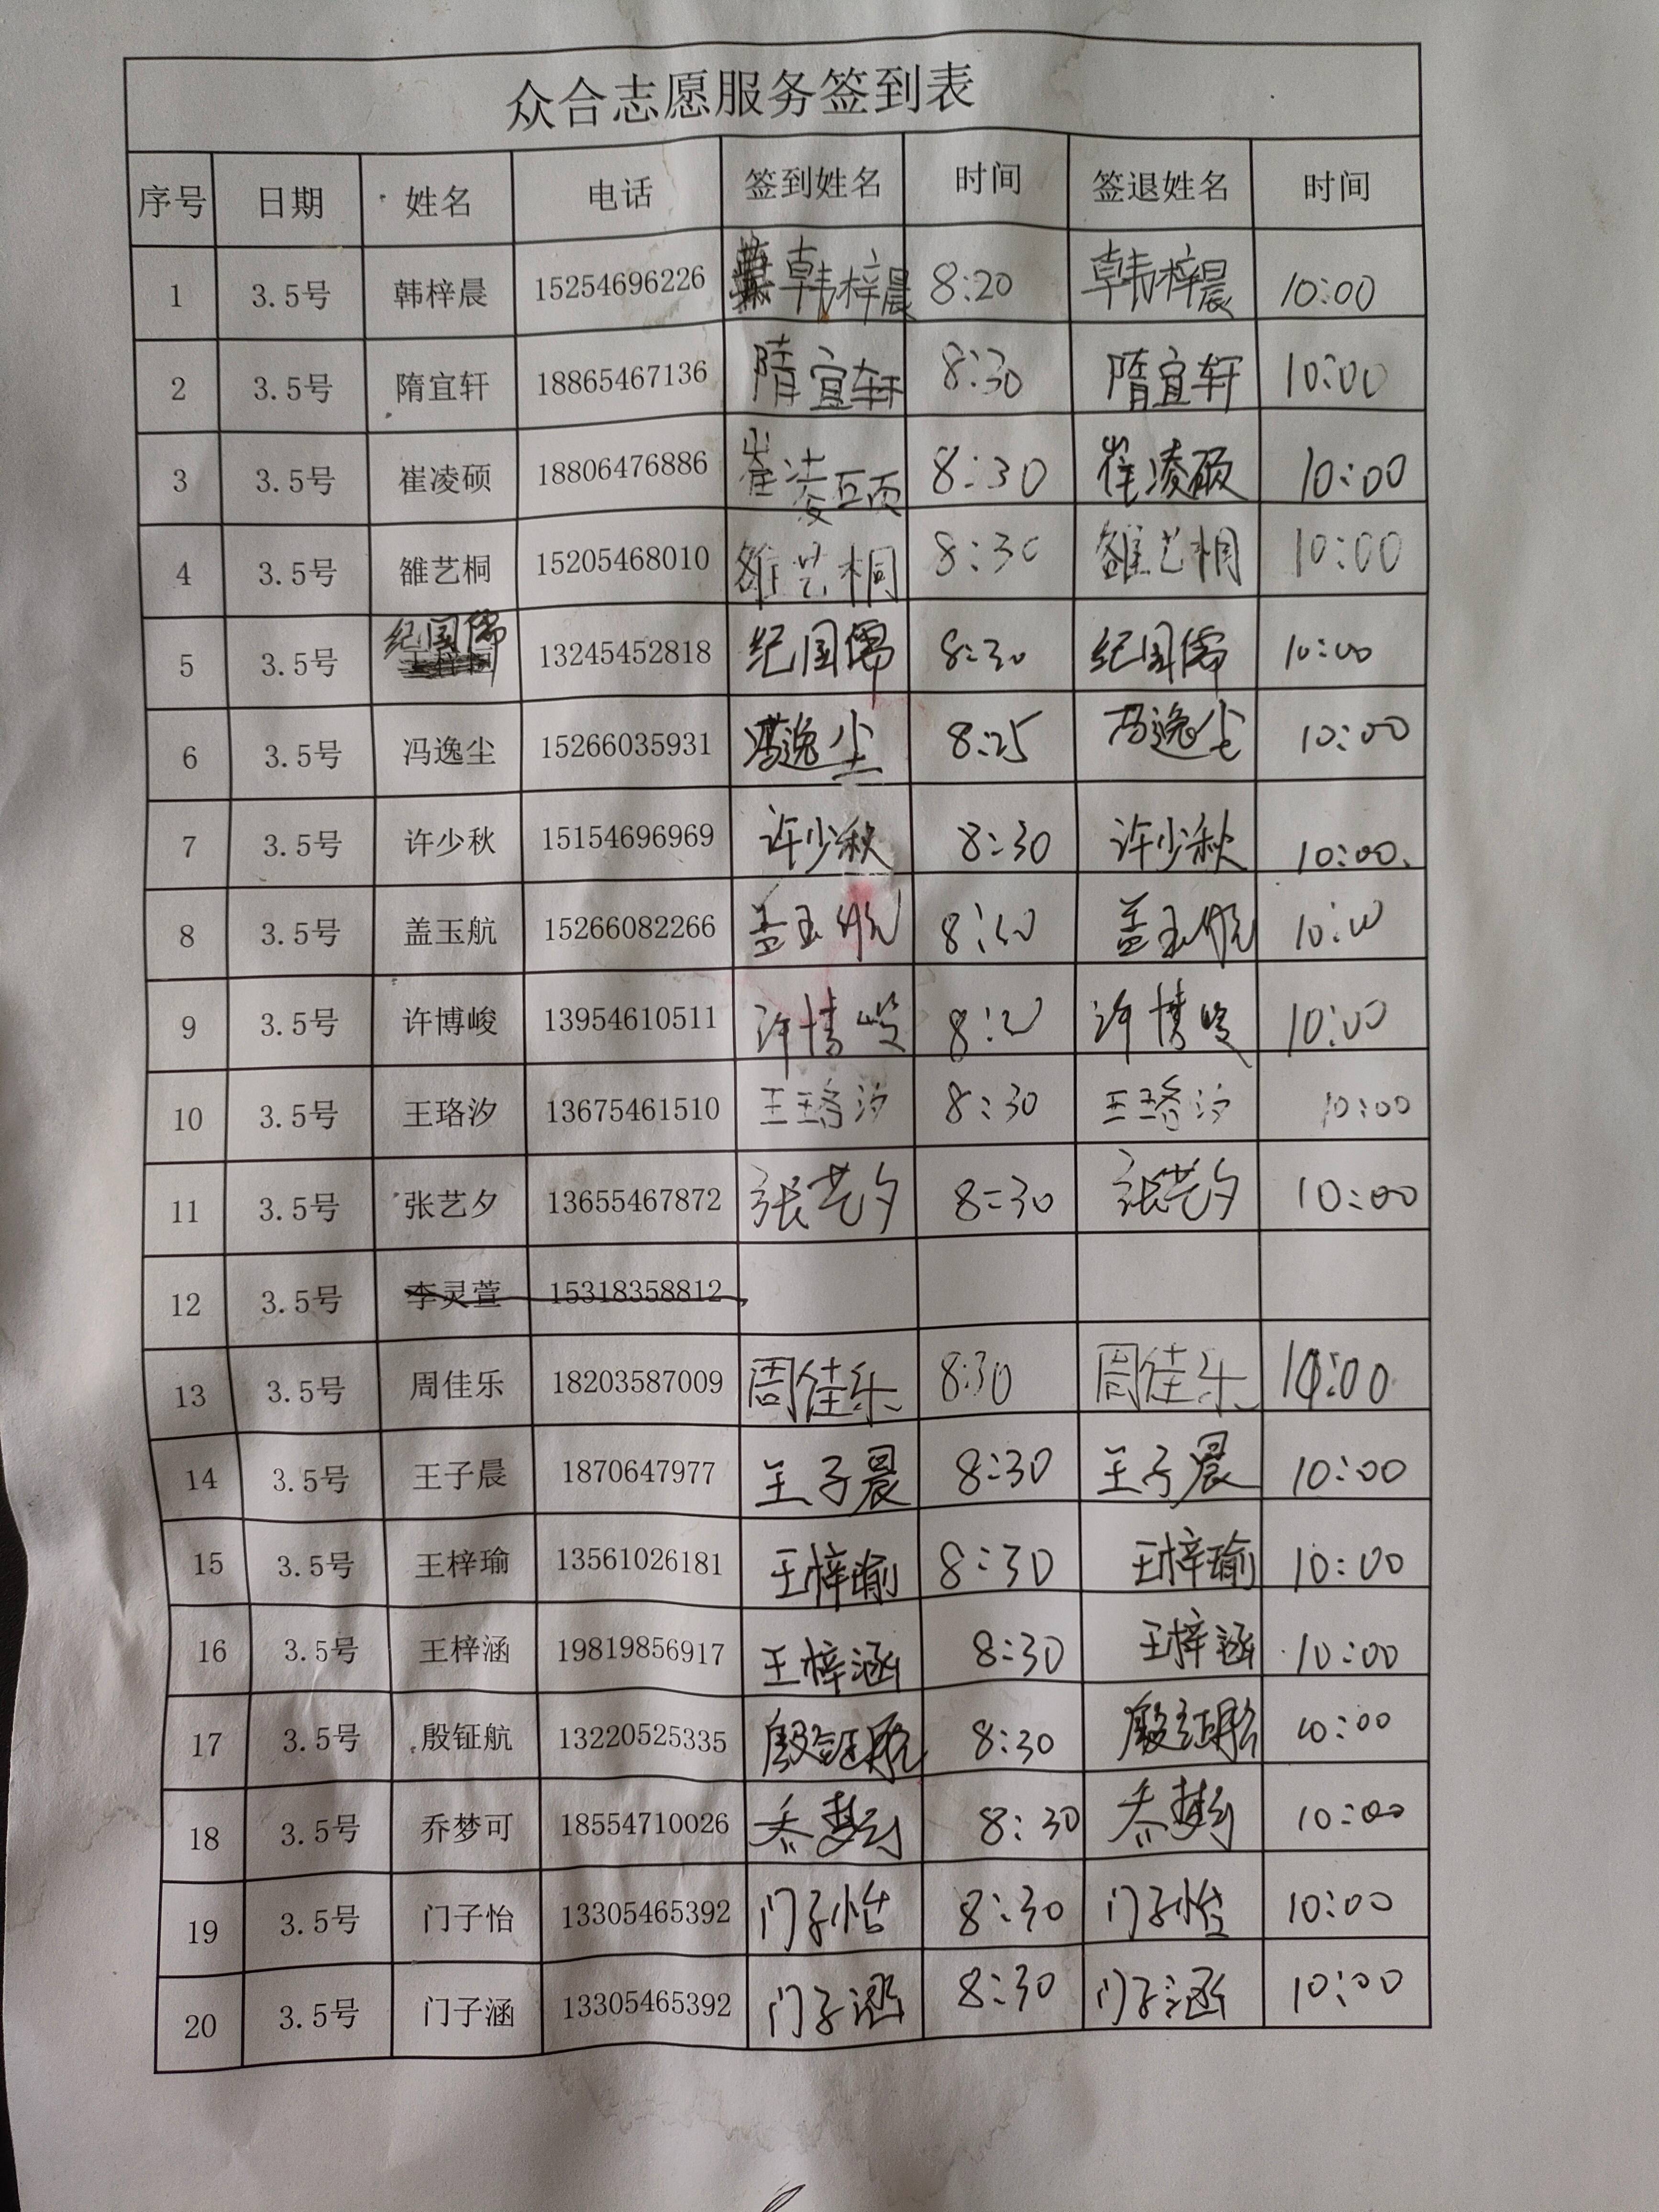 众合志愿服务签到表
序号 日期 姓名 电话 签到姓名 时间 签退姓名 时间
1 3.5号 韩梓晨 15254696226 韩梓晨 8:20 韩梓晨 10:00
2 3.5号 隋宜轩 18865467136 隋宜轩 8:30 隋宜轩 10:00
3 3.5号 崔凌硕 18806476886 崔凌硕 8:30 崔凌硕 10:00
4 3.5号 雒艺桐 15205468010 雒艺桐 8:30 雒艺桐 10:00
5 3.5号 纪国儒 13245452818 纪国儒 8:30 纪国儒 10:00
6 3.5号 冯逸尘 15266035931 冯逸尘 8:25 冯逸尘 10:00
7 3.5号 许少秋 15154696969 许少秋 8:30 许少秋 10:00.
8 3.5号 盖玉航 15266082266 盖玉航 盖玉航 10:00
9 3.5号 许博峻 13954610511 许博峻 许博峻 10:00
10 3.5号 王珞汐 13675461510 王珞汐 8:30 王珞汐 10:00
11 3.5号 张艺夕 13655467872 张艺夕 8:30 张艺夕 10:00
12 3.5号 李灵萱 15318358812
13 3.5号 周佳乐 18203587009 周佳乐 8:30 周佳乐 10:00
14 3.5号 王子晨 1870647977 王子晨 8:30 王子晨 10:00
15 3.5号 王梓瑜 13561026181 王梓瑜 8:30 王梓瑜 10:00
16 3.5号 王梓涵 19819856917 王梓涵 8:30 王梓涵 10:00
17 3.5号 殷钲航 13220525335 殷钲航 8:30 殷钲航 10:00
18 3.5号 乔梦可 18554710026 乔梦可 8:30 乔梦可 10:00
19 3.5号 门子怡 13305465392 门子怡 8:30 门子怡 10:00
20 3.5号 门子涵 13305465392 门子涵 8:30 门子涵 10:00